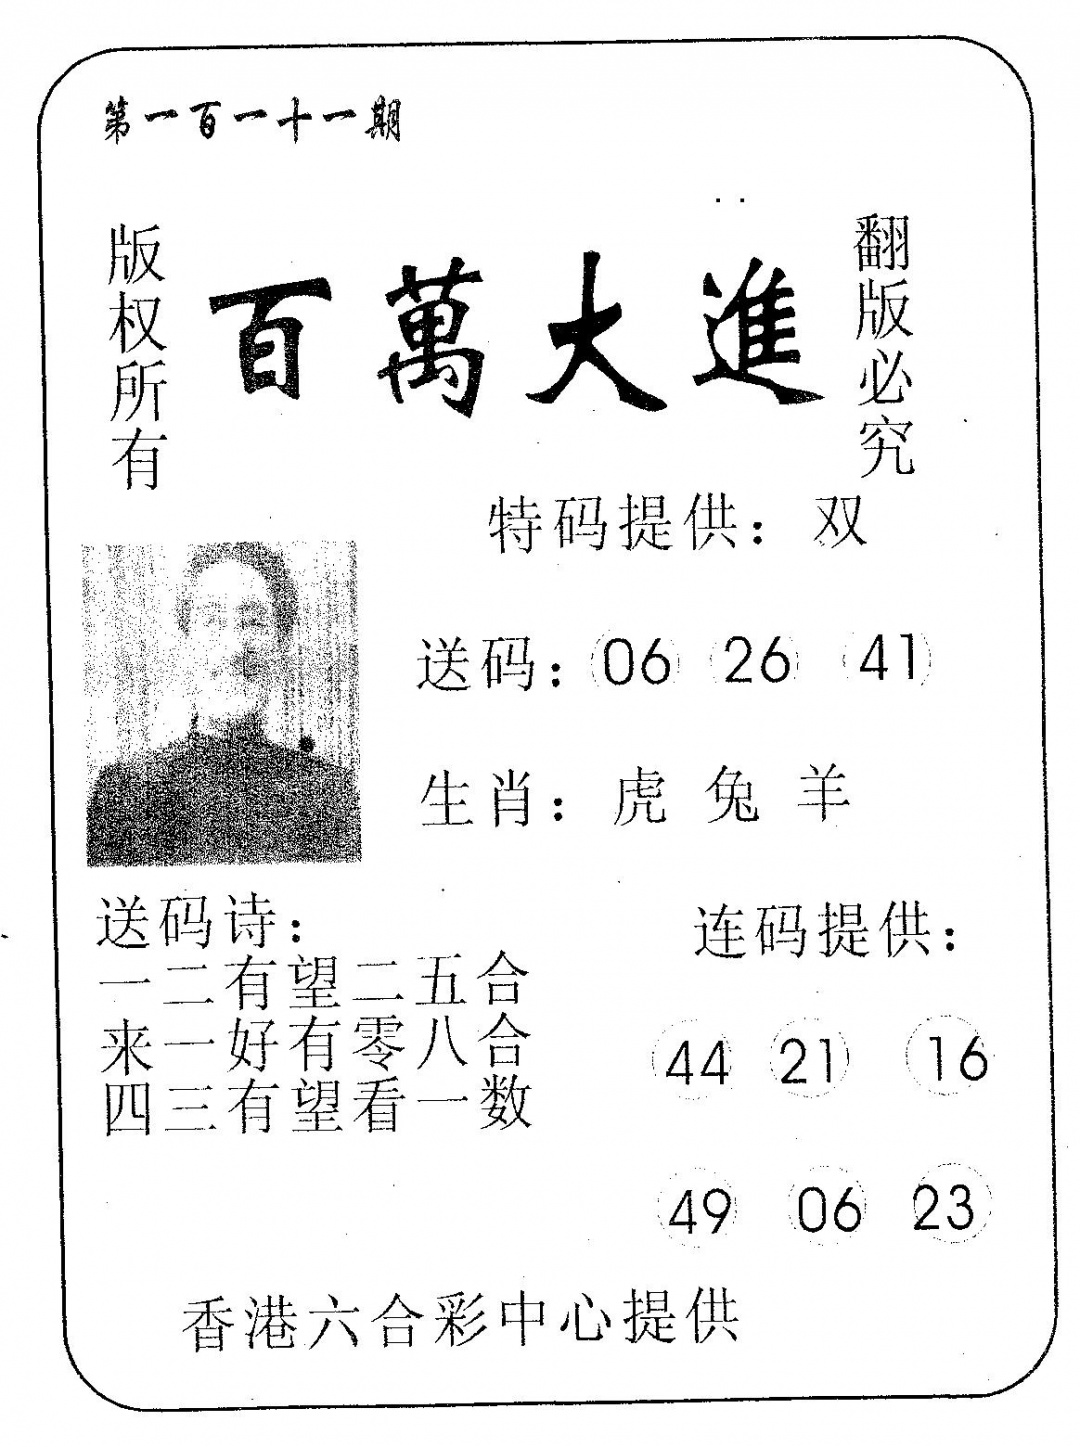 第一百一十一期
版权所有
百萬大進
翻版必究
特码提供：双
送码：06 26 41
生肖：虎 兔 羊
送码诗：
一二有望二五合
来一好有零八合
四三有望看一数
连码提供：
44 21 16
49 06 23
香港六合彩中心提供